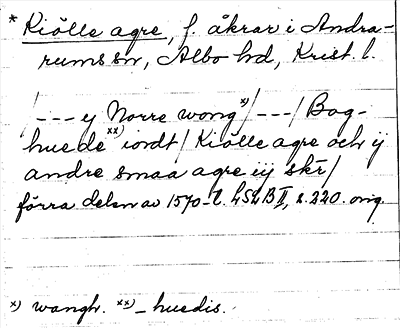 * Kiölle agre, f. åkrar i Andra-
rums sn, Albo hd, Krist. l.
/--- ij Norre wong x)/---/ Bog-
huede xx) iordt/ Kiölle agre och ij
andre smaa agre iij skr/
förra delen av 1570-t. LSLB II, s. 220. orig.
x) wangh. xx) -huedis.